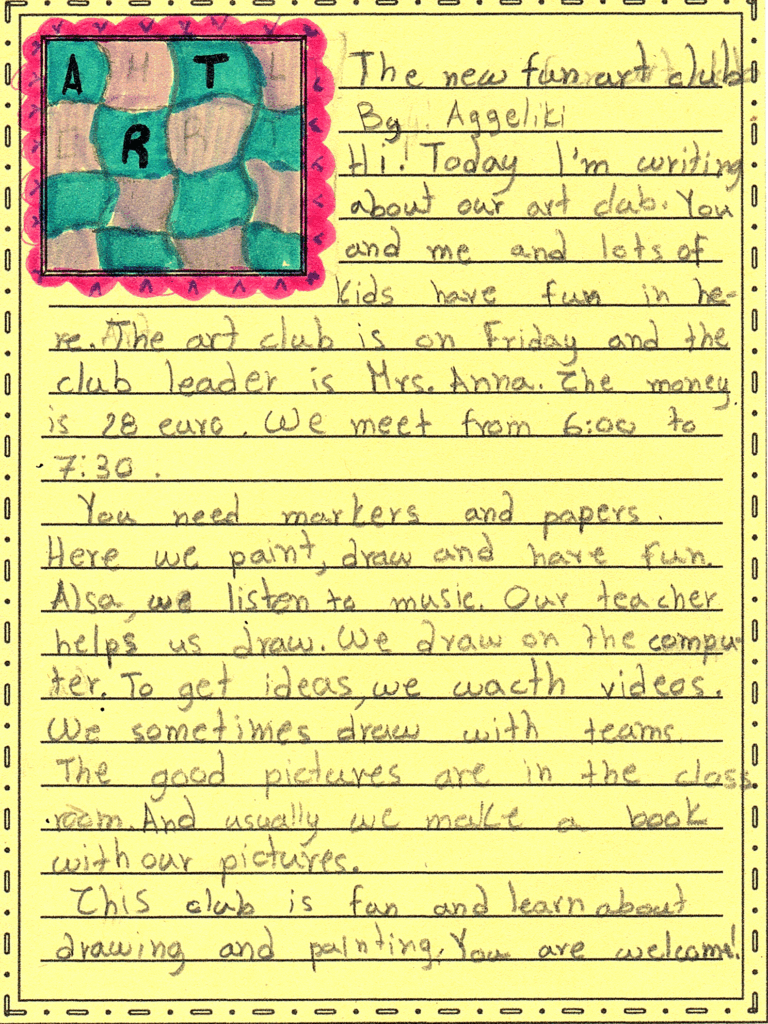 A H T L
E R B I
The new fun art club
By Aggeliki
Hi! Today I'm writing
about our art club. You
and me and lots of
kids have fun in he-
re. The art club is on Friday and the
club leader is Mrs. Anna. The money
is 28 euro. We meet from 6:00 to
7:30.
You need markers and papers.
Here we paint, draw and have fun.
Also, we listen to music. Our teacher
helps us draw. We draw on the compu-
ter. To get ideas, we wacth videos.
We sometimes draw with teams
The good pictures are in the class
room. And usually we make a book
with our pictures.
This club is fan and learn about
drawing and painting. You are welcome!